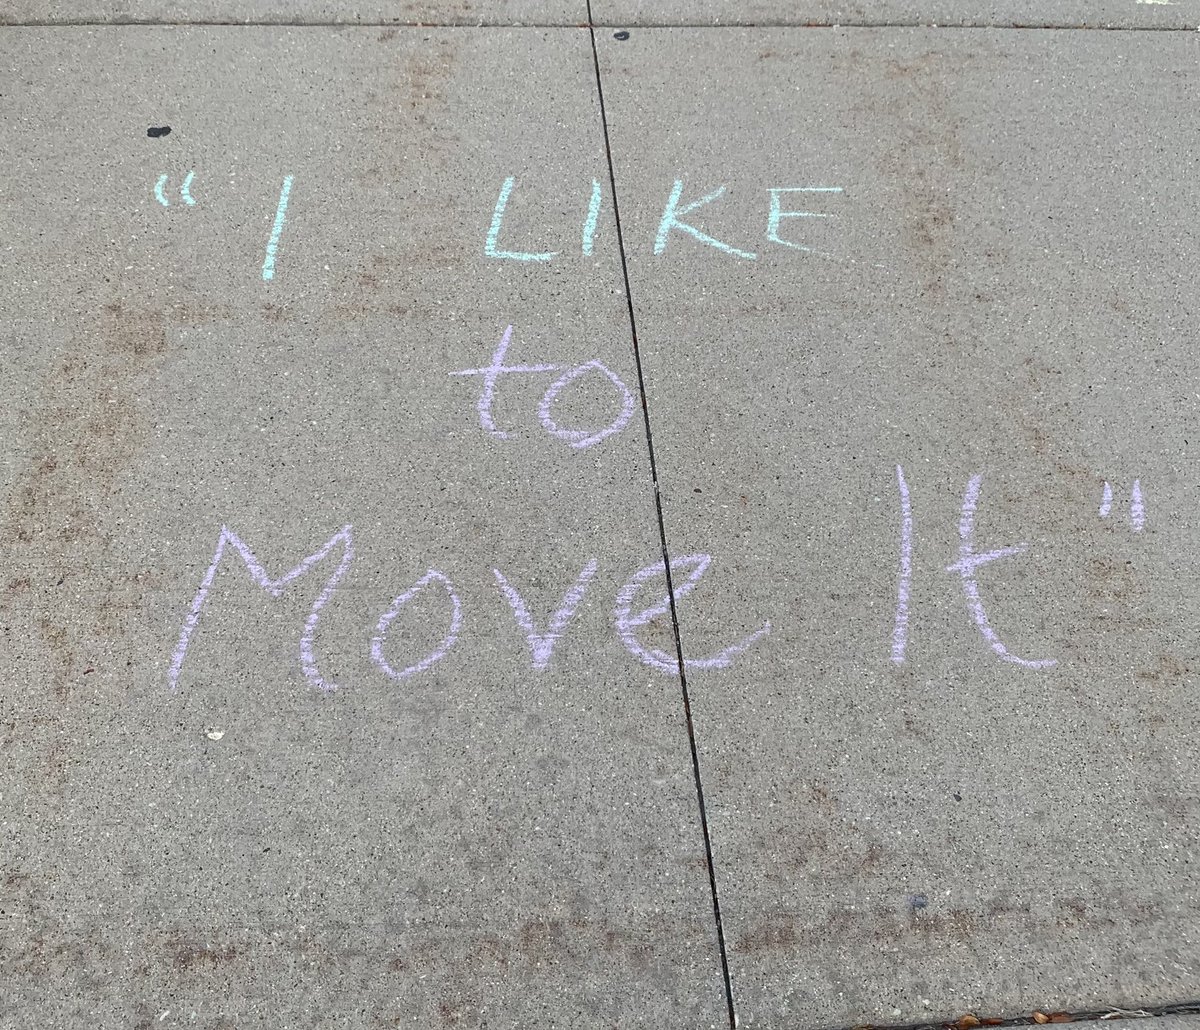 “I LIKE
to
Move It"